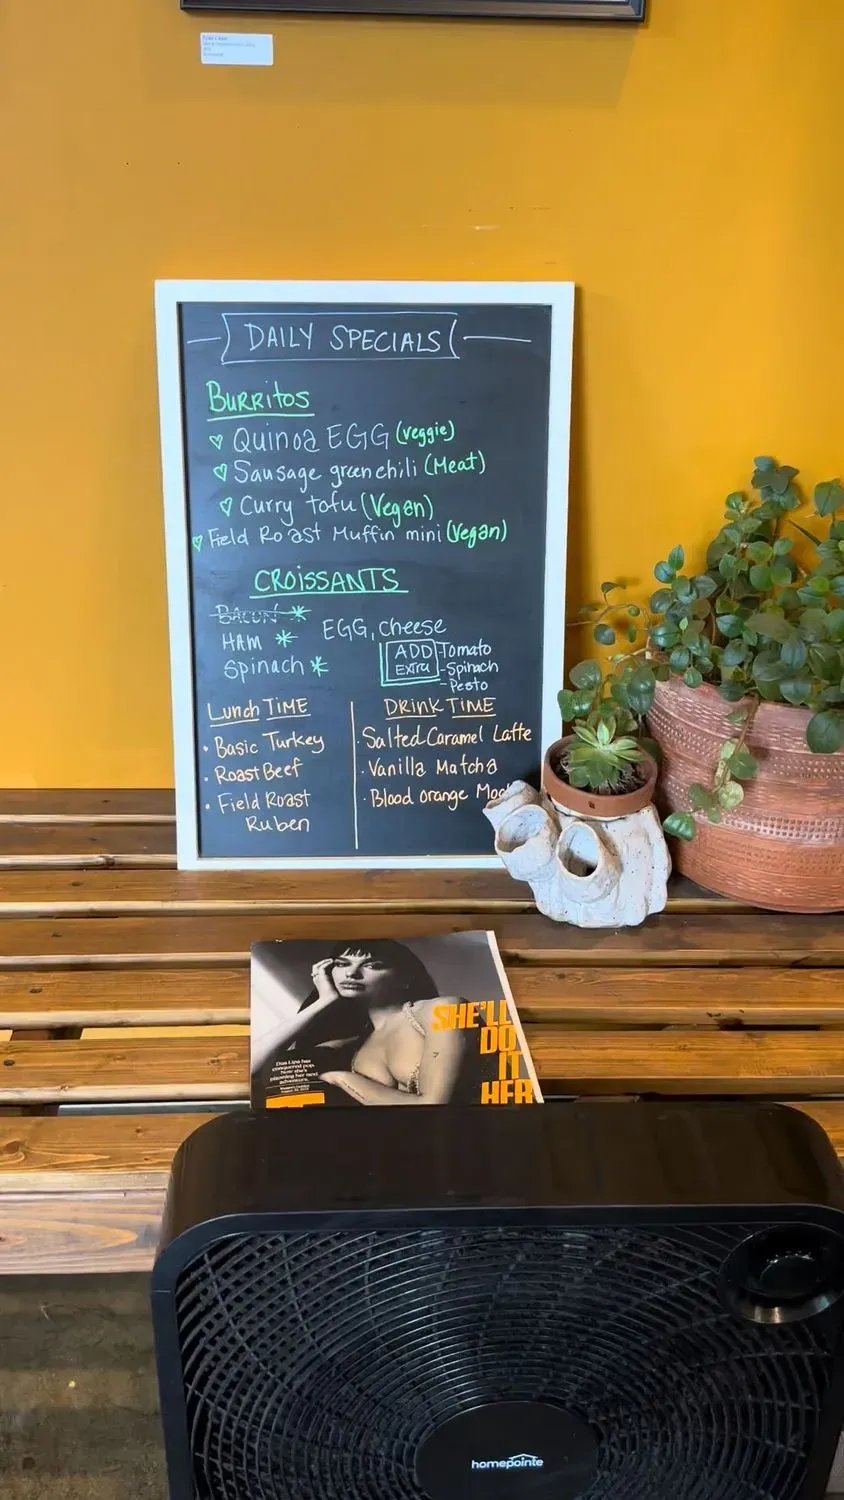 DAILY SPECIALS
BURRitos
Quinoa EGG (veggie)
Sausage green chili (Meat)
Curry tofu (Vegan)
Field Roast Muffin mini (Vegan)
CROISSANTS
BACON *
HAM *
Spinach *
EGG, cheese
ADD EXTRA
Tomato
-Spinach
-Pesto
Lunch TIME
• Basic Turkey
• Roast Beef
• Field Roast
Ruben
DRINK TIME
· Salted Caramel Latte
· Vanilla Matcha
· Blood orange
SHE'LL
DO
IT
HER
Dua Lipa has
conquered pop.
Now she's
planning her next
adventure.
homepointe